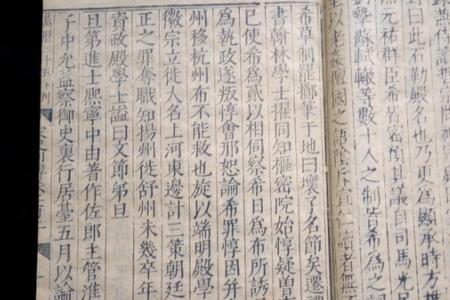 曰此石勒殿名也乃更為顯承時方推
元祐羣臣希皆密預其議自司馬光
摯蘇軾轍等數十人之制皆希為之
以老姦擅國之語陰斥宣仁讀者無
希草制罷擲筆于地曰壞了名節矣遷禮
書翰林學士擢同知樞密院始惇疑曾
已使希為貳以相伺察希日為布所誘
為執政遂叛惇會邢恕論希罪惇因并
州移杭州布不能救也旋以端明殿學
徽宗立徙大名上河東邊計三策朝廷
正之罪奪職知揚州徙舒州未幾卒年
資政殿學士謚曰文節弟旦
旦第進士熙寧中由著作佐郎主管淮
子中允監察御史裏行居臺五月以論